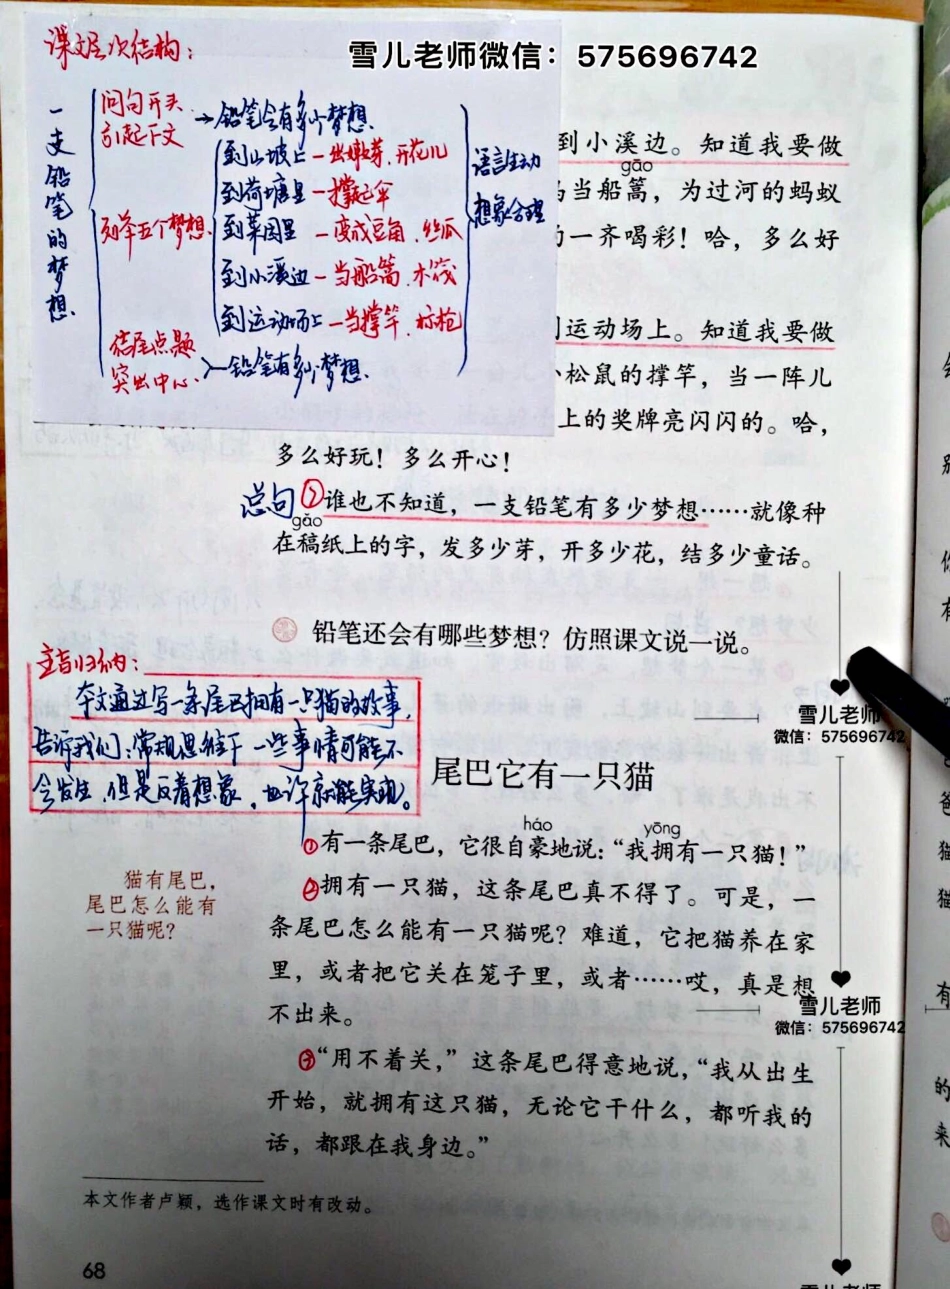 课文层次结构：
雪儿老师微信：575696742
一支铅笔的梦想
问句开头
引起下文
→铅笔会有多少梦想
列举五个梦想
到山坡上—出嫩芽、开花儿
到荷塘里—撑起伞
到菜园里—变成豆角、丝瓜
到小溪边—当船篙、木筏
到运动场上—当撑竿、标枪
结尾点题
突出中心
铅笔有多少梦想
语言生动
想象合理
到小溪边。知道我要做
gāo
当船篙，为过河的蚂蚁
一齐喝彩！哈，多么好
运动场上。知道我要做
小松鼠的撑竿，当一阵儿
上的奖牌亮闪闪的。哈，
多么好玩！多么开心！
总句
⑦谁也不知道，一支铅笔有多少梦想……就像种
gǎo
在稿纸上的字，发多少芽，开多少花，结多少童话。
铅笔还会有哪些梦想？仿照课文说一说。
主旨归纳：
本文通过写一条尾巴拥有一只猫的故事，
告诉我们，常规思维下一些事情可能不
会发生，但是反着想象，也许就能实现。
雪儿老师
微信：575696742
尾巴它有一只猫
háo yōng
①有一条尾巴，它很自豪地说：“我拥有一只猫！”
②拥有一只猫，这条尾巴真不得了。可是，一
条尾巴怎么能有一只猫呢？难道，它把猫养在家
里，或者把它关在笼子里，或者……哎，真是想
不出来。
猫有尾巴，
尾巴怎么能有
一只猫呢？
雪儿老师
微信：575696742
③“用不着关，”这条尾巴得意地说，“我从出生
开始，就拥有这只猫，无论它干什么，都听我的
话，都跟在我身边。”
本文作者卢颖，选作课文时有改动。
68
雪儿老师